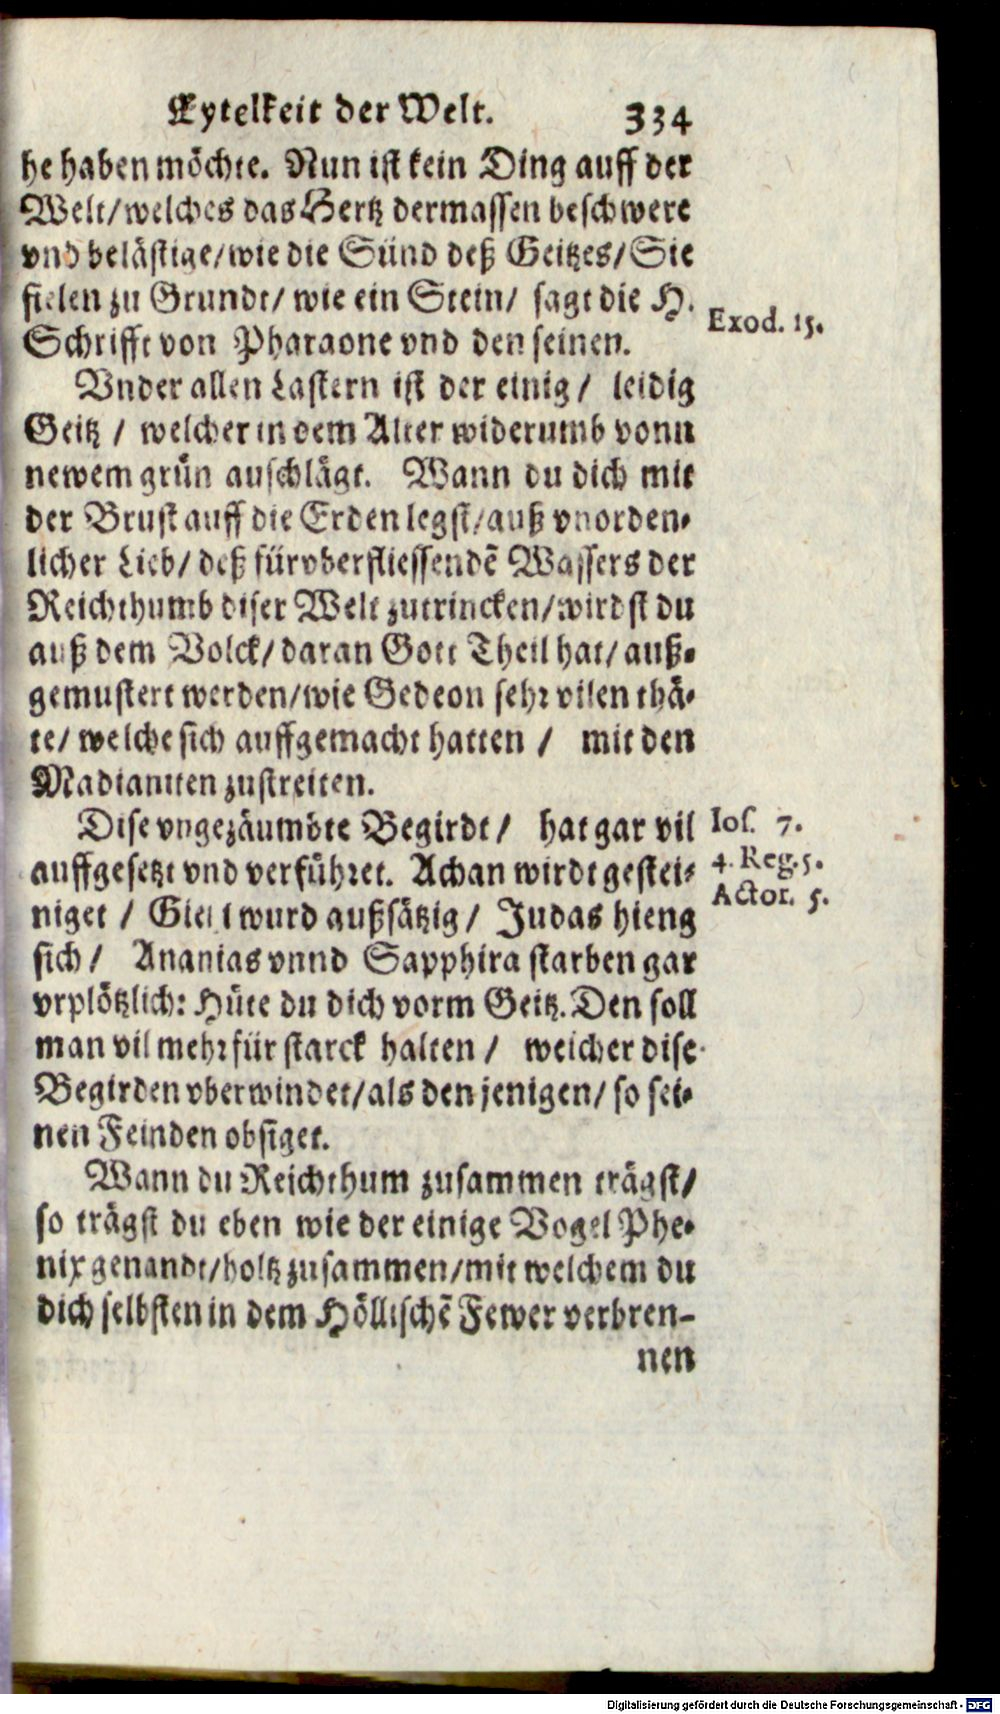 Eytelkeit der Welt. 334
he haben möchte. Nun ist kein Ding auff der
Welt/welches das Hertz dermassen beschwere
vnd belästige/wie die Sünd deß Geitzes/Sie
fielen zu Grundt/ wie ein Stein/ sagt die H.
Exod. 15.
Schrifft von Pharaone vnd den seinen.
Vnder allen Lastern ist der einig/ leidig
Geitz / welcher in dem Alter widerumb vonn
newem grün auschlägt. Wann du dich mit
der Brust auff die Erden legst/auß vnorden-
licher Lieb/ deß fürvberfliessendē Wassers der
Reichthumb diser Welt zutrincken/wirdst du
auß dem Volck/daran Gott Theil hat/auß-
gemustert werden/wie Gedeon sehr vilen thä-
te/ welche sich auffgemacht hatten / mit den
Madianiten zustreiten.
Dise vngezäumbte Begirdt/ hat gar vil
Ios. 7.
auffgesetzt vnd verführet. Achan wirdt gestei-
4. Reg. 5.
niget / wurd außsätzig/ Judas hieng
Actor. 5.
sich / Ananias vnnd Sapphira starben gar
vrplötzlich: Hüte du dich vorm Geitz. Den soll
man vil mehr für starck halten / welcher dise
Begirden vberwindet/als den jenigen/ so sei-
nen Feinden obsiget.
Wann du Reichthum zusammen trägst/
so trägst du eben wie der einige Vogel Phe-
nix genandt/holtz zusammen/mit welchem du
dich selbsten in dem Höllischē Fewer verbren-
nen
Digitalisierung gefördert durch die Deutsche Forschungsgemeinschaft - DFG